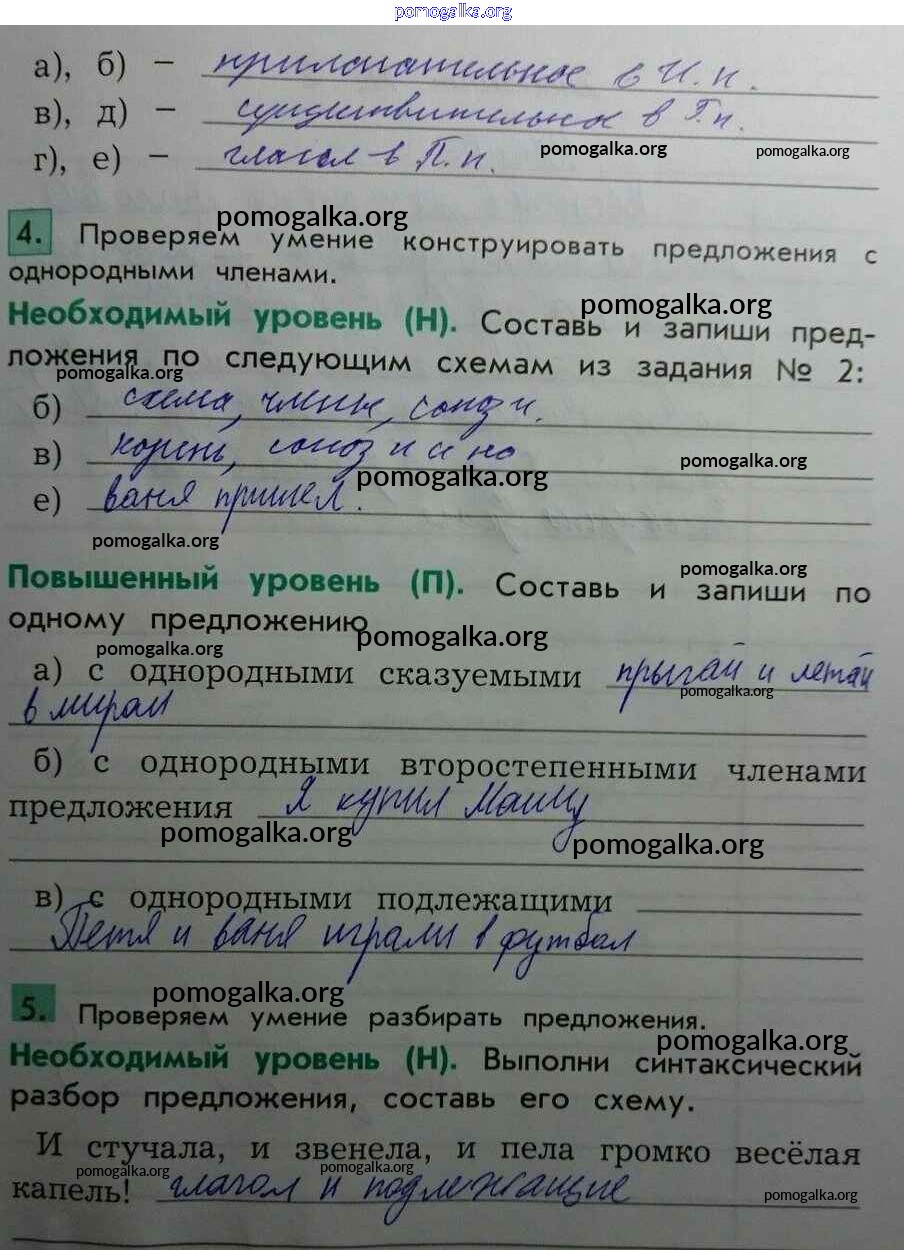 pomogalka.org
а), б) – прилогательное в И.п.
в), д) – существительное в Р.п.
pomogalka.org pomogalka.org
г), е) – глагол в П.п.
pomogalka.org
4. Проверяем умение конструировать предложения с
однородными членами.
pomogalka.org
Необходимый уровень (Н). Составь и запиши пред-
ложения по следующим схемам из задания № 2:
pomogalka.org
б) схема, члены, союз и.
в) корень, союз и и но
pomogalka.org pomogalka.org
е) ваня пришел.
pomogalka.org
pomogalka.org
Повышенный уровень (П). Составь и запиши по
одному предложению
pomogalka.org
pomogalka.org
а) с однородными сказуемыми прыгай и летай
pomogalka.org
в мирам
б) с однородными второстепенными членами
предложения Я купил Машу
pomogalka.org pomogalka.org
в) с однородными подлежащими
Петя и ваня играли в футбол
pomogalka.org
5. Проверяем умение разбирать предложения.
pomogalka.org
Необходимый уровень (Н). Выполни синтаксический
разбор предложения, составь его схему.
И стучала, и звенела, и пела громко весёлая
pomogalka.org pomogalka.org
капель! глагол и подлежащие
pomogalka.org